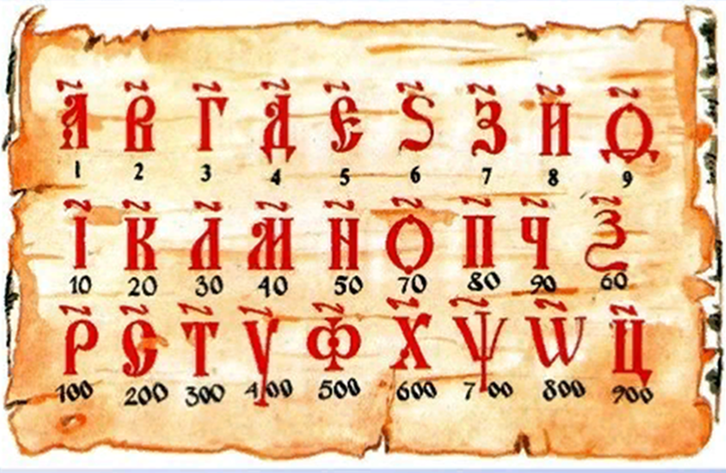 А҃ В҃ Г҃ Д҃ Є҃ Ѕ҃ З҃ И҃ Ѳ҃
1 2 3 4 5 6 7 8 9
І҃ К҃ Л҃ М҃ Н҃ О҃ П҃ Ч҃ Ѯ҃
10 20 30 40 50 70 80 90 60
Р҃ С҃ Т҃ У҃ Ф҃ Х҃ Ѱ҃ Ѿ҃ Ц҃
100 200 300 400 500 600 700 800 900